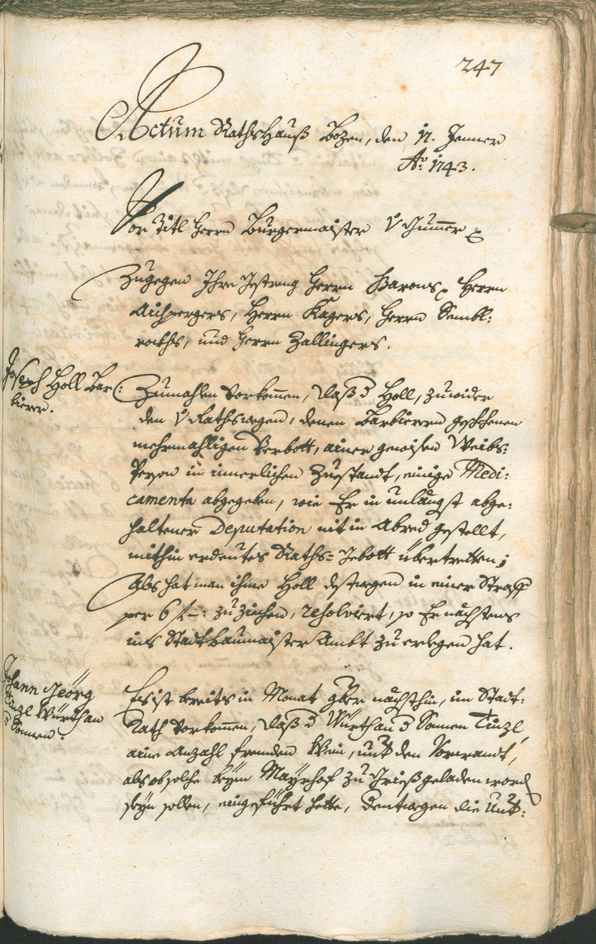 247
Actum RathsHauß Bozen, den 17. Jenner
Ao: 1743.
Vor Titl Herrn Burgermaister
Zugegen Ihro Gestreng Herrn Herrn
Aichpergers, Herrn Kagers, Herrn
und Herrn Zallingers.
Joseph Holl Bar-
bierer.
Zumahlen vorkommen, daß d Holl, zuwider
den denen Barbierern geschehenen
mehrmahligen Verbott, ainer gewissen Weibs-
Persohn in innerlichen Zuestandt, einige Medi-
camenta abgegeben, wie Er in unlängst abge-
haltener Deputation nit in Abred gestellt,
mithin erdeutes Raths-Gebott übertretten;
Als hat man ihme Holl in einer Straff
per 6 f: zu ziehen, resolviert, so Er nächstens
ins Stadtbaumaister Ambt zu erlegen hat.
Johann Georg
Tinzl Würth an
d Sonnen.
Es ist bereits in Monat nächsthin, im Stadt-
Rath vorkommen, daß d Würth an d Sonnen Tinzl,
aine Anzahl frembden Wein, unter den Vorwandt,
als ob solche beym Mayrhof zu Grieß geladen word
seyn sollen, eingeführt hette, dentwegen die